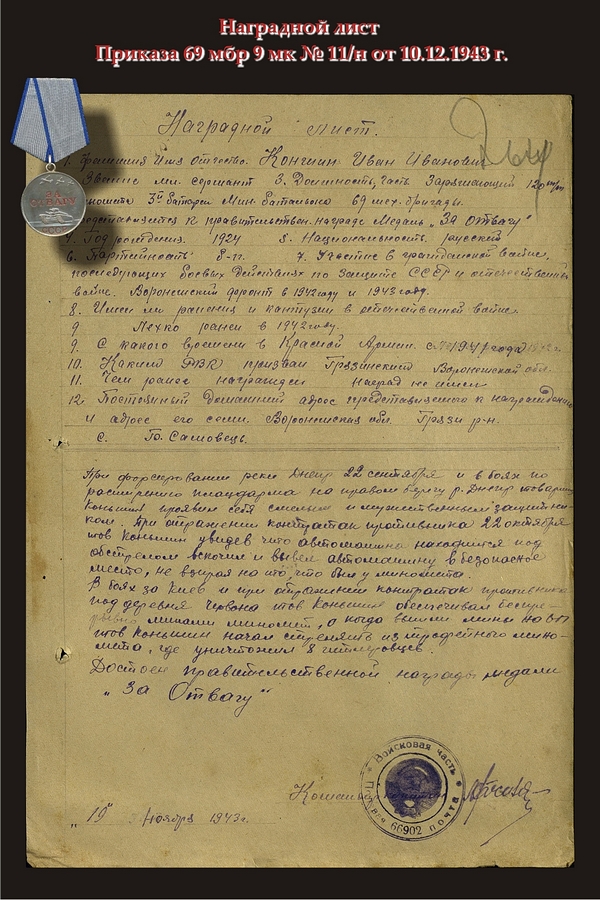 Наградной лист
Приказа 69 мбр 9 мк № 11/н от 10.12.1943 г.
Наградной лист.
1. Фамилия Имя Отчество. Коншин Иван Иванович
Звание мл. сержант 3. Должность, часть Заряжающий 120
3й батареи Мин. батальона 69 мех. бригады.
к правительствен. награде Медаль "За Отвагу"
Год рождения. 1924 5. Национальность русский
6. Партийность б-п. 7. Участие в гражданской войне,
последующих боевых действиях по защите СССР и отечественной
войне. Воронежский фронт в 1942 году и 1943 году.
8. Имел ли ранения и контузии в отечественной войне.
9 Легко ранен в 1942 году.
9. С какого времени в Красной Армии. с 1941 года
10. Каким РВК призван Грязинским Воронежской обл.
11. Чем ранее награжден наград не имел
12. Постоянный домашний адрес представляемого к награждению
и адрес его семьи. Воронежская обл. Грязи р-н.
с. Самовец.
При форсировании реки Днепр 22 сентября и в боях по
расширению плацдарма на правом берегу р. Днепр товарищ
Коншин проявил себя смелым и мужественным защитни-
ком. При отражении контратак противника 22 октября
тов Коншин увидев что автомашина находится под
обстрелом вскочил и вывел автомашину в безопасное
место, не взирая на то, что был у миномета.
В боях за Киев и при отражении контратак противника
под деревня Червона тов Коншин обеспечивал беспре-
рывно минами миномет, а когда вышли мины
тов Коншин начал стрелять из трофейного мино-
мета, где уничтожил 8 гитлеровцев.
Достоен правительственной награды медали
"За Отвагу"
Войсковая часть
почта
66902
"19" Ноября 1943 г.
ЗА
ОТВАГУ
СССР